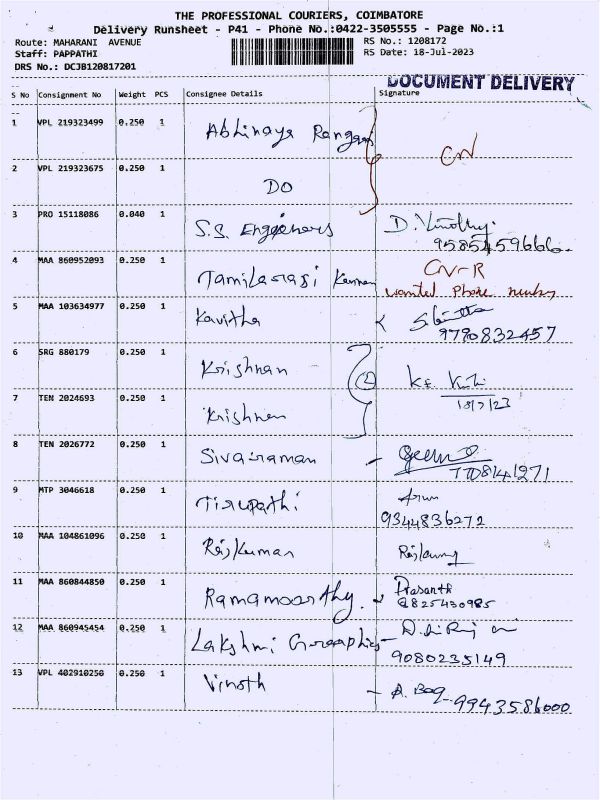 THE PROFESSIONAL COURIERS, COIMBATORE
Delivery Runsheet - P41 - Phone No.:0422-3505555 - Page No.:1
Route: MAHARANI AVENUE RS No.: 1208172
Staff: PAPPATHI RS Date: 18-Jul-2023
DRS No.: DCJB120817201
DOCUMENT DELIVERY
S No Consignment No Weight PCS Consignee Details Signature
1 VPL 219323499 0.250 1 Abhinaya Rangan
CN
2 VPL 219323675 0.250 1 DO
3 PRO 15118086 0.040 1 S.S. Engineers D. Vinothy.
9585459666
4 MAA 860952093 0.250 1 Tamilarasi Kannan CN-R
wanted phone number
5 MAA 103634977 0.250 1 Kavitha
9790832457
6 SRG 880179 0.250 1 Krishnan
2
7 TEN 2024693 0.250 1 Krishnan
18/7/23
8 TEN 2026772 0.250 1 Sivaraman
7708141271
9 MTP 3046618 0.250 1 Tirupathi Arun
9344836272
10 MAA 104861096 0.250 1 Rajkumar Rajkumar
11 MAA 860844850 0.250 1 Ramamoorthy. Prasanth
9825430985
12 MAA 860945454 0.250 1 Lakshmi Graphics
9080235149
13 VPL 402910250 0.250 1 Vinoth
9943586000